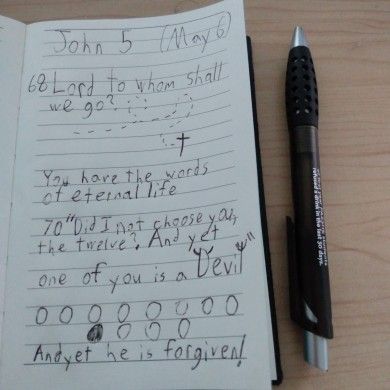 John 5 (May 6)
68 Lord to whom shall
we go?
You have the words
of eternal life
70 "Did I not choose you,
the twelve? And yet
one of you is a Devil"
And yet he is forgiven!